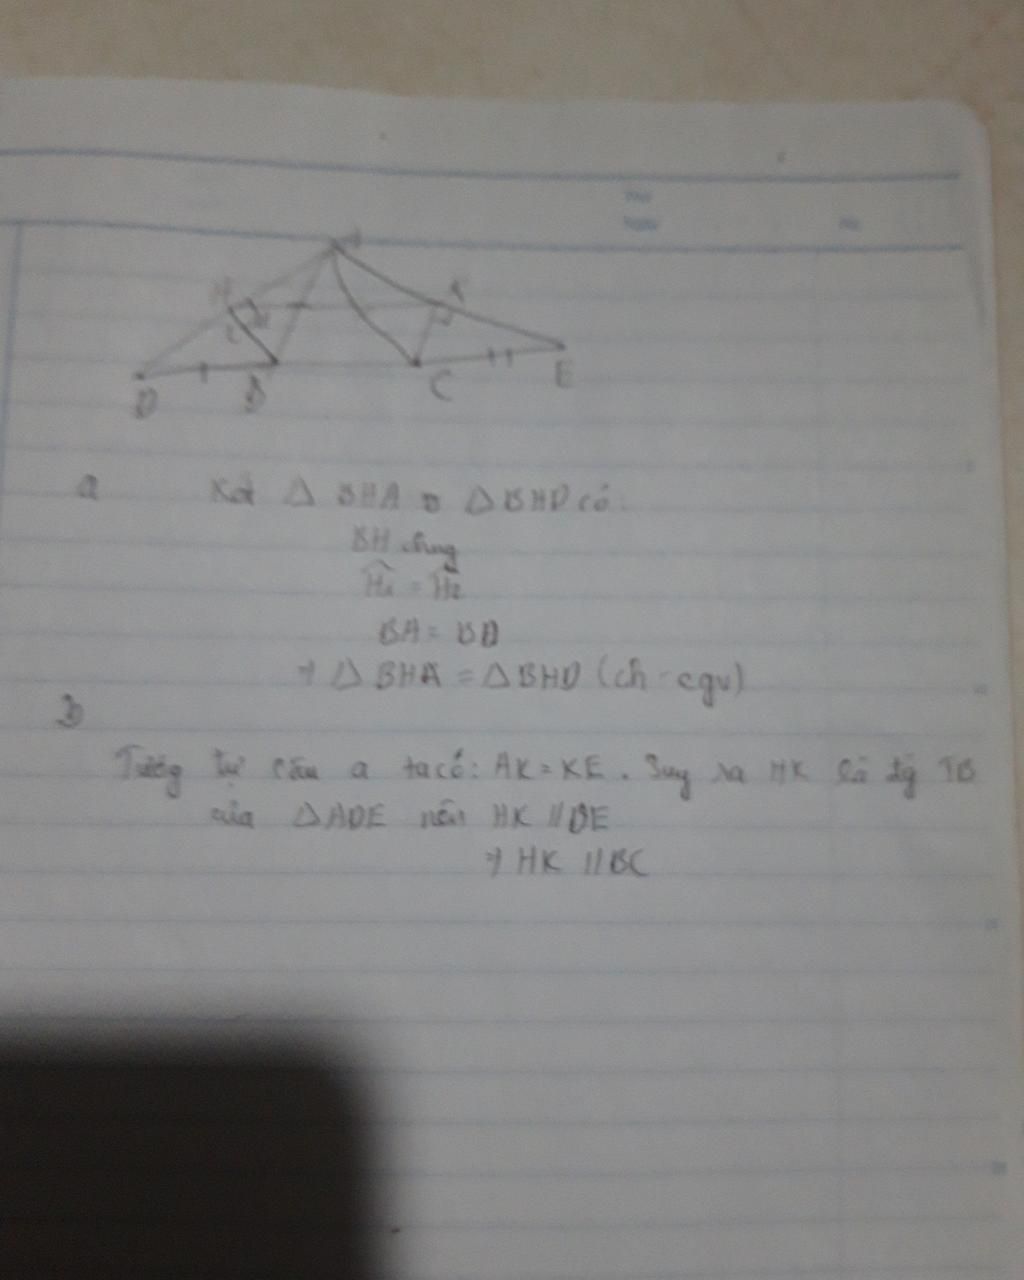 A
H
K
D
B
C
E
a Xét △ BHA và △ BHD có:
BH chung
Ĥ₁ = Ĥ₂
BA = BD
⇒ △ BHA = △ BHD (ch - cgv)
b
Tương tự câu a ta có: AK = KE. Suy ra HK là đg TB
của △ADE nên HK // DE
⇒ HK // BC